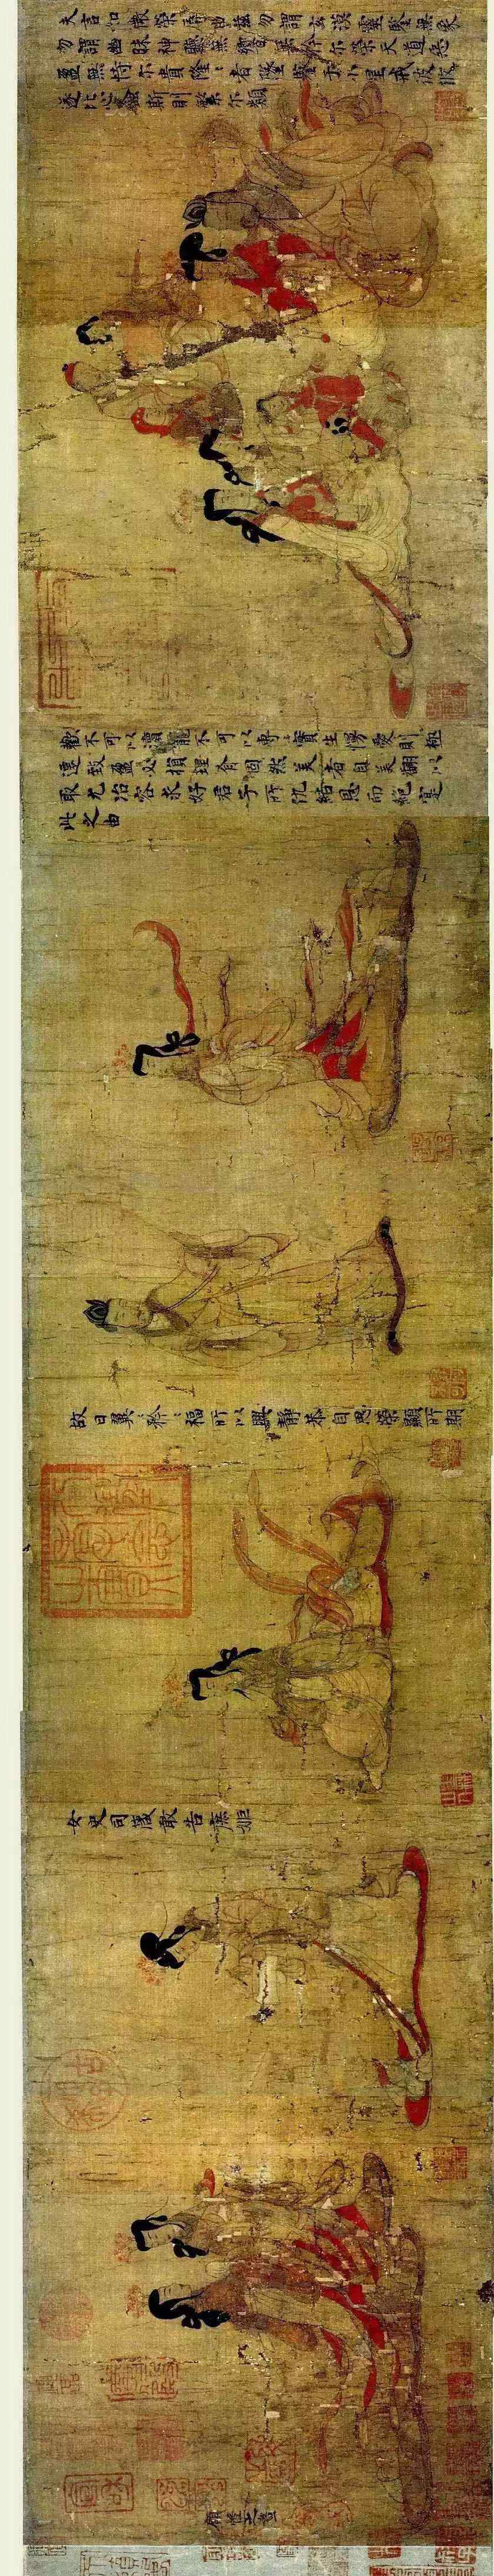 夫言如微榮辱由茲勿謂玄漠靈鑒無象
勿謂幽昧神聽無響無矜尓榮天道惡
盈無恃尓貴隆〻者墜鑒于小星戒彼攸
遂比心螽斯則繁尓類
歡不可以黷寵不可以專〻實生慢愛則極
遷致盈必損理有固然美者自美翩以
取尤冶容求好君子所仇結恩而絕寔
此之由
故曰翼〻矜〻福所以興靜恭自思榮顯所期
女史司箴敢告庶姬
顧愷之畫